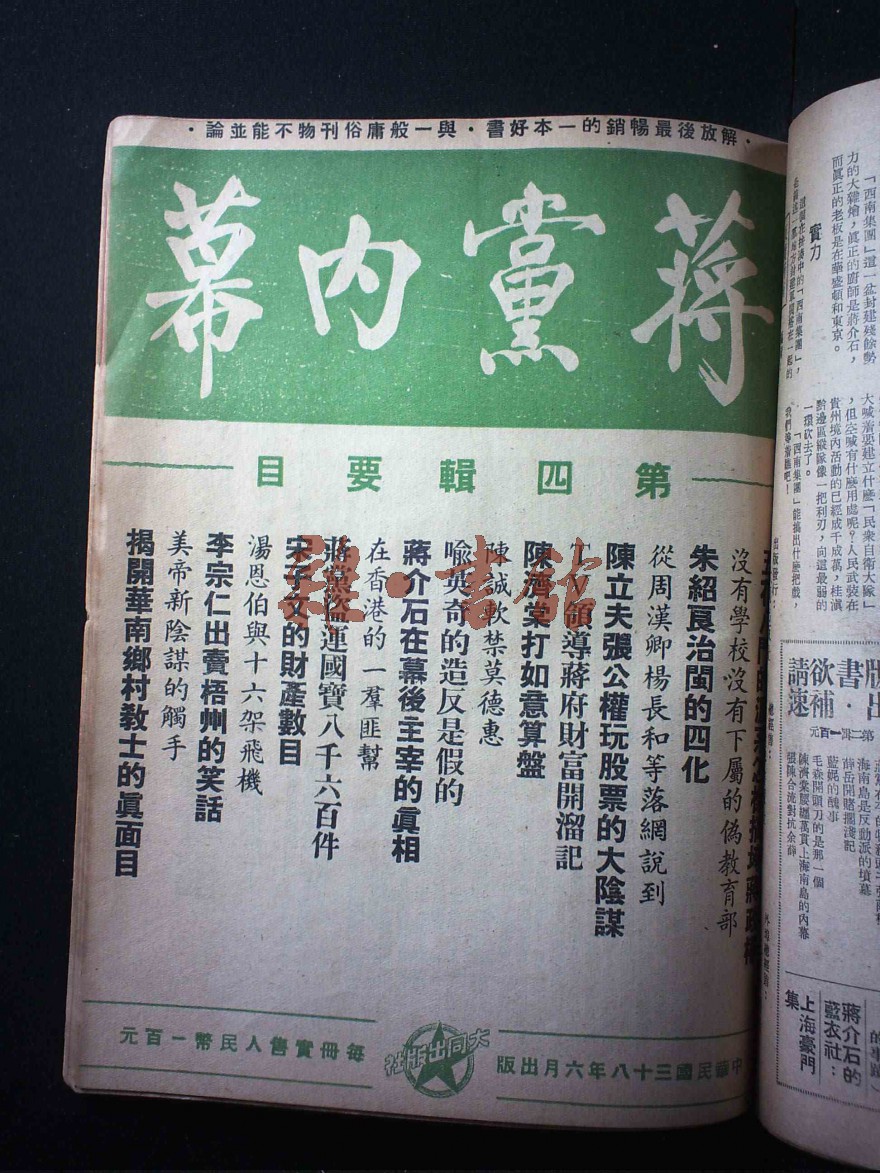 解放後最暢銷的一本好書·與一般庸俗刊物不能並論·
蔣黨內幕
第四輯要目
沒有學校沒有下屬的偽教育部
朱紹良治閩的四化
從周漢卿楊長和等落網說到
陳立夫張公權玩股票的大陰謀
TV領導蔣府財富開溜記
陳濟棠打如意算盤
陳誠軟禁莫德惠
喩英奇的造反是假的
蔣介石在幕後主宰的眞相
在香港的一羣匪幫
蔣黨盜運國寶八千六百件
宋子文的財產數目
湯恩伯與十六架飛機
李宗仁出賣梧州的笑話
美帝新陰謀的觸手
揭開華南鄉村敎士的眞面目
中華民國三十八年六月出版
大同出版社
每冊實售人民幣一百元
「西南集團」這一盆封建殘餘勢
力的大雜燴，眞正的廚師是蔣介石，
而眞正的老板是在華盛頓和東京。
實力
大喊着要建立什麼「民衆自衛大隊」
，但空喊有什麼用處呢？人民武裝在
貴州境內活動的已經成千成萬，桂滇
黔邊區縱隊像一把利刃，向這最弱的
一環砍去了。
「西南集團」能搞出什麼把戲，
我們等着瞧吧！
版出
書·
欲補
請速
第二輯一百元
海南島是反動派的墳墓
薛岳開賭擱淺記
藍妮的醜事
毛森開頭刀的是那一個
陳濟棠腰纏萬貫上海南島的內幕
張陳合流對抗余薛
蔣介石的
藍衣社：
上海豪門
集